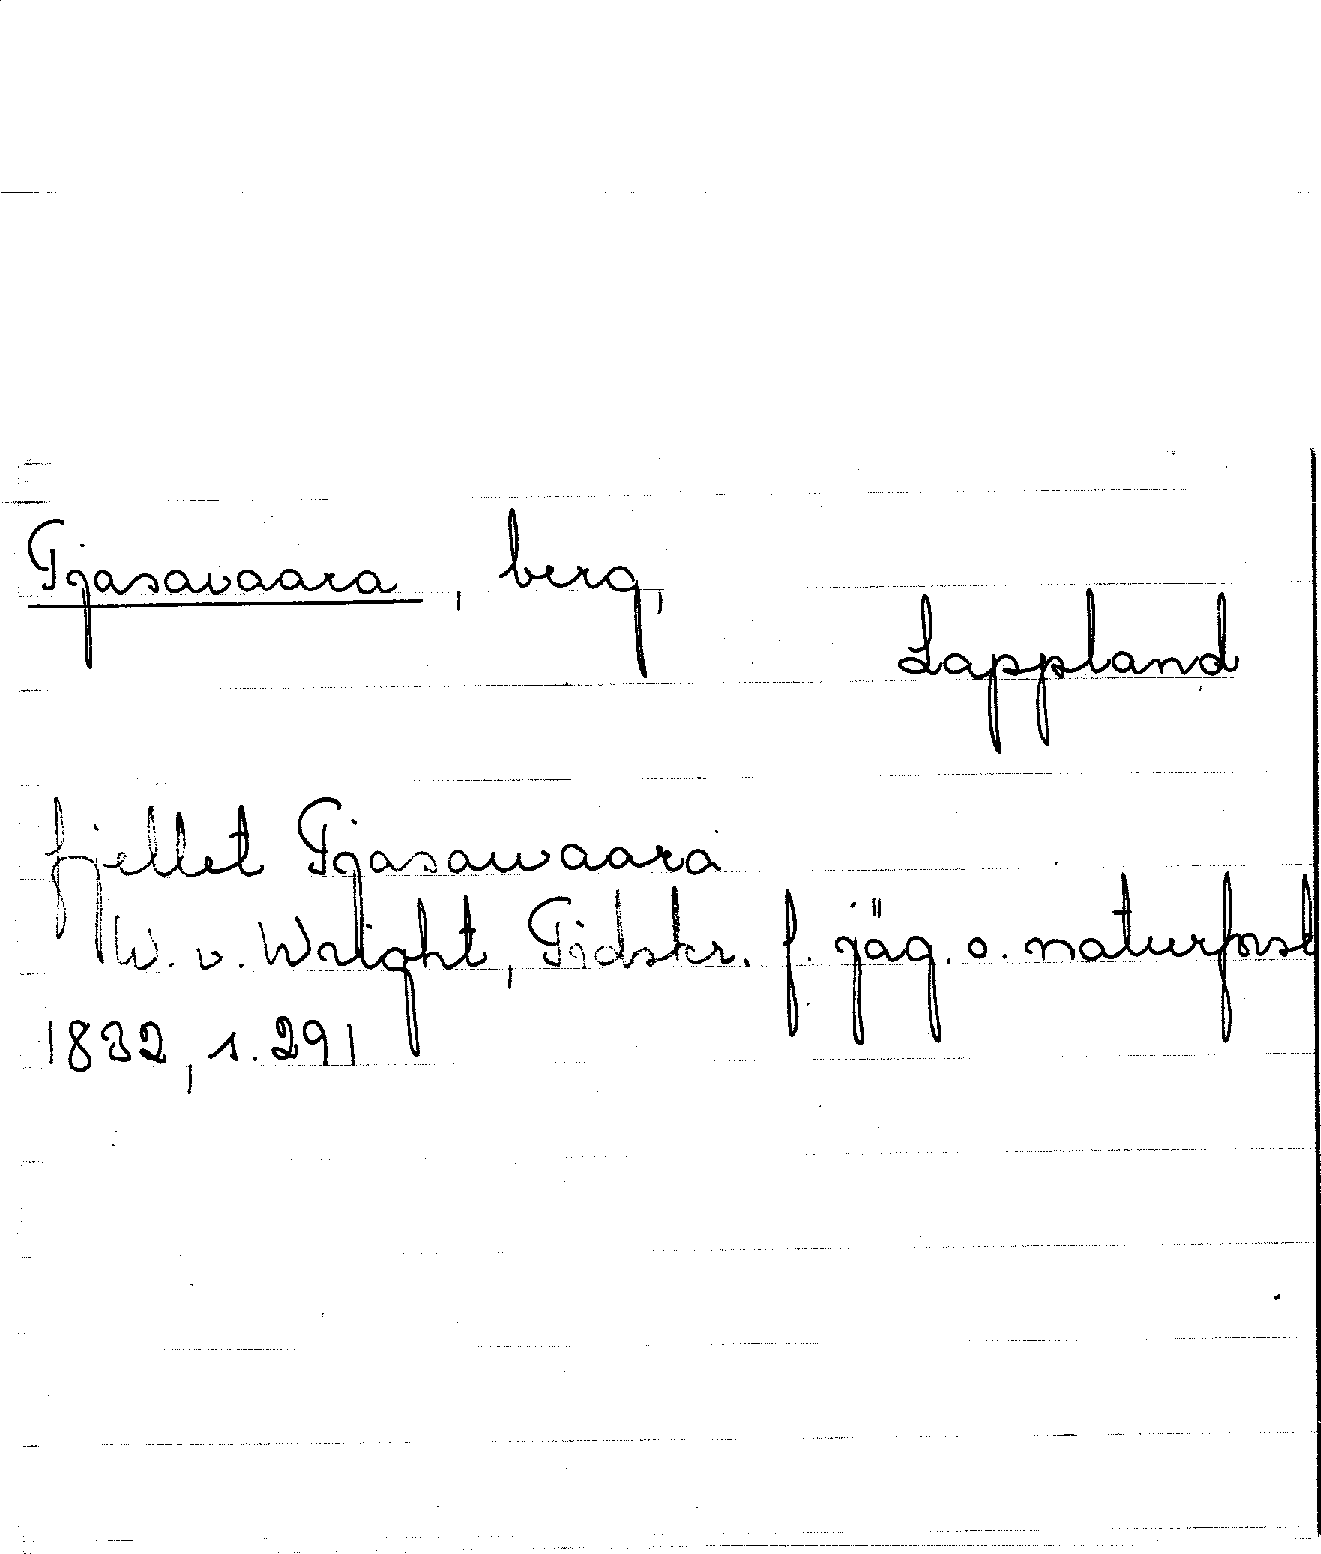 Tjasavaara, berg,
Lappland
fjellet Tjasawaara
W. v. Wright, Tidskr. f. jäg. o. naturforsk
1832, s. 291